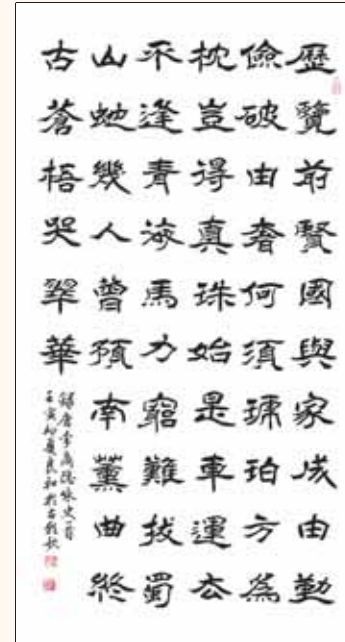 歷覽前賢國與家成由勤
儉破由奢何須琥珀方為
枕豈得真珠始是車運去
不逢青海馬力窮難拔蜀
山虵幾人曾預南薰曲終
古蒼梧哭翠華
錄唐李商隱咏史一首
壬寅初夏良和於古